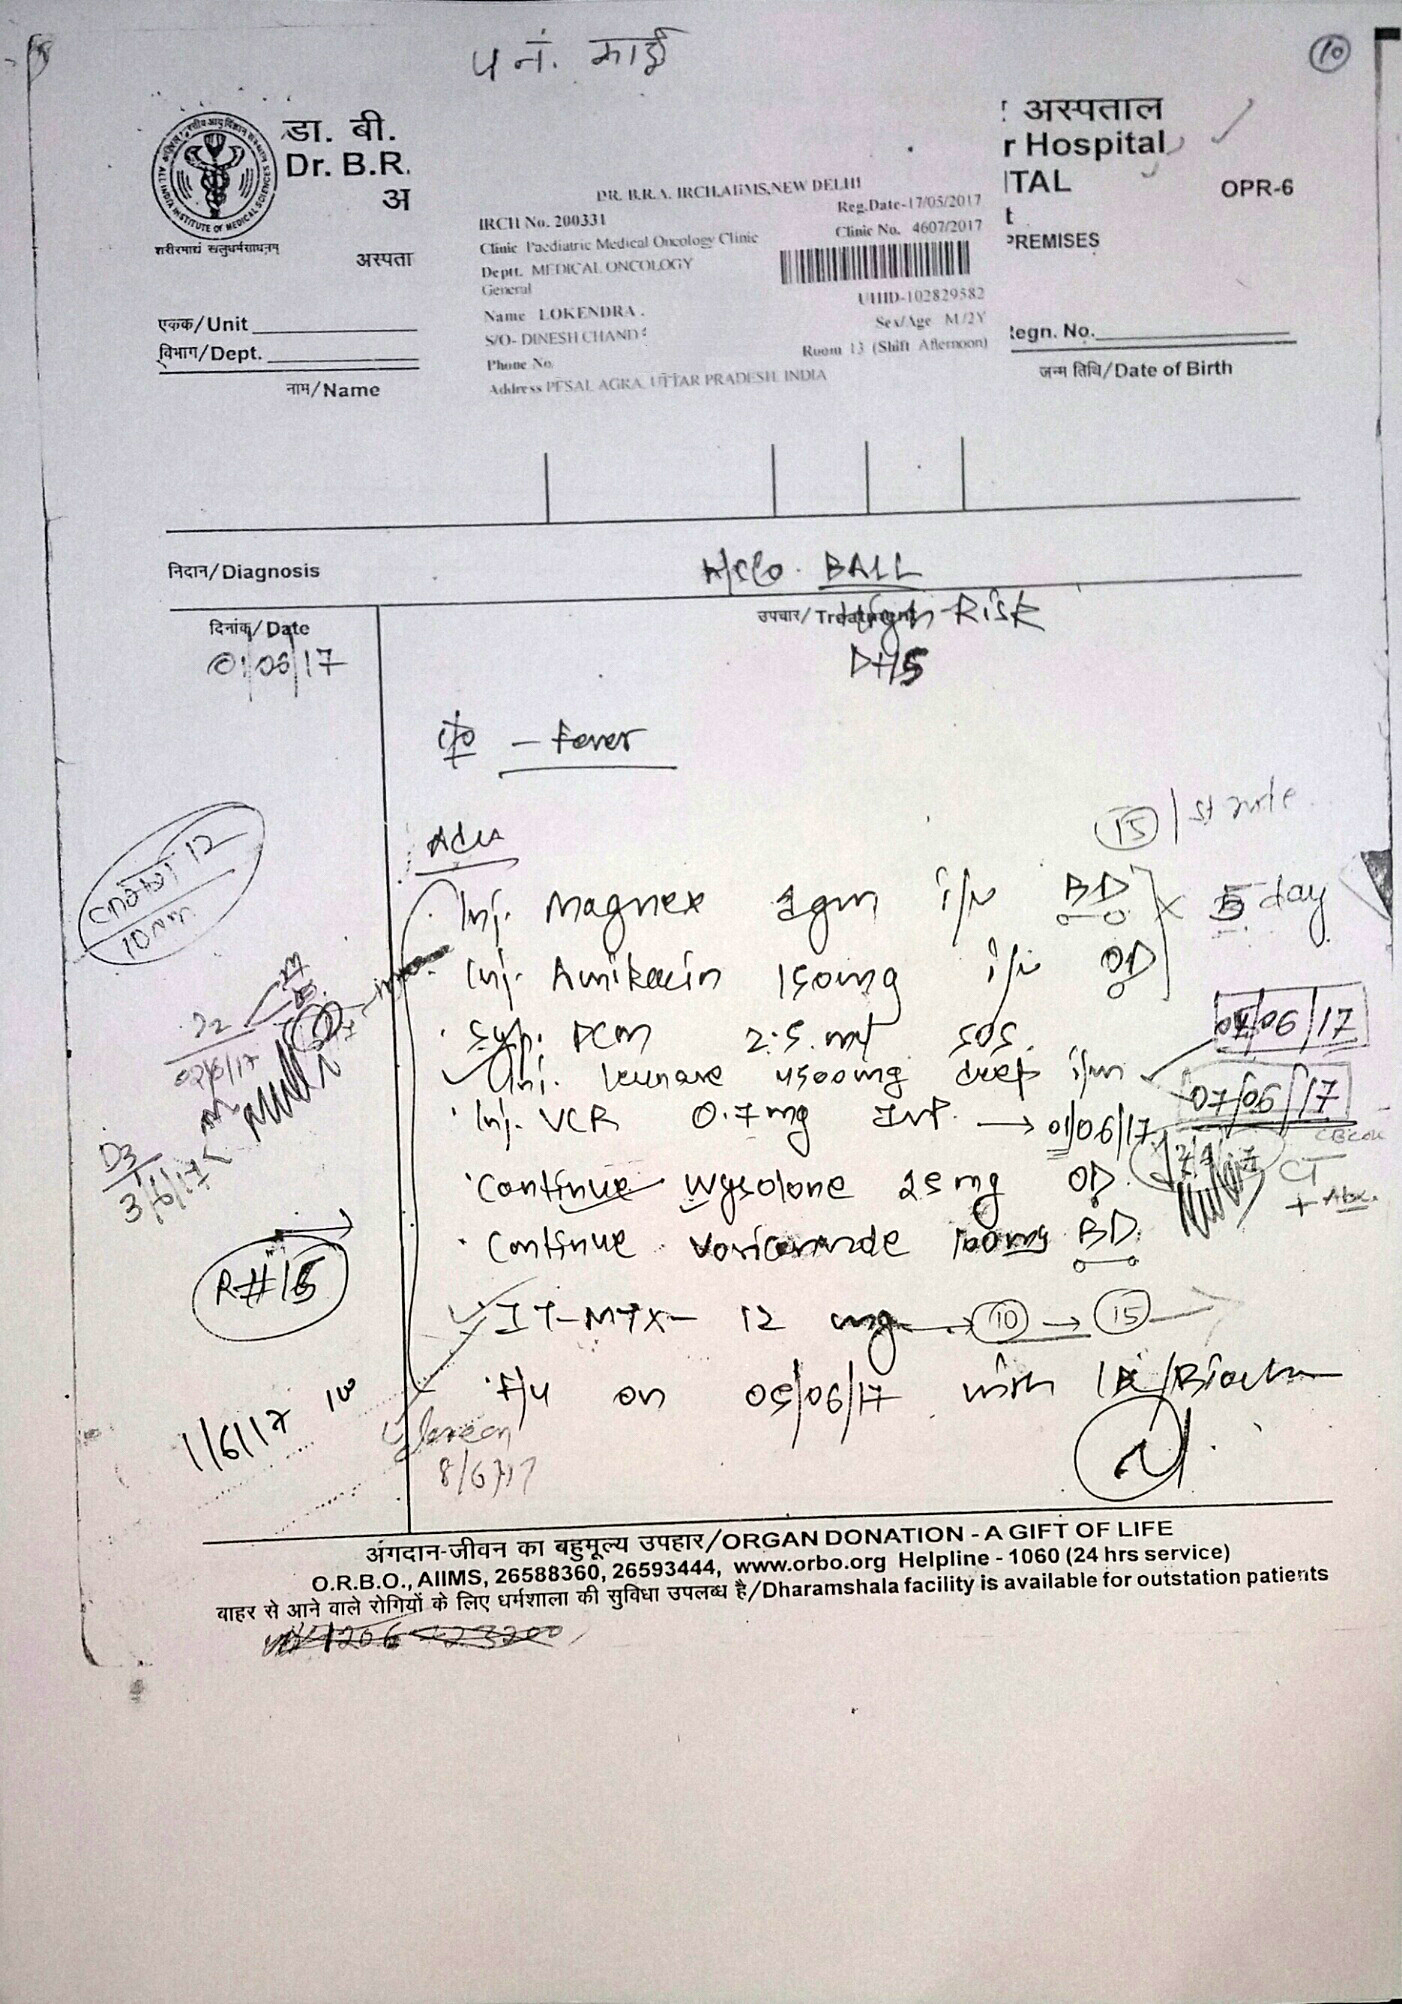 प नं. माई
10
डा. बी.
Dr. B.R.
अ
अस्पता
शरीरमाद्यं खलुधर्मसाधनम्
ALL INDIA INSTITUTE OF MEDICAL SCIENCES
अस्पताल
r Hospital
ITAL
OPR-6
t
PREMISES
DR. B.R.A. IRCH,AIIMS,NEW DELHI
IRCH No. 200331
Reg.Date-17/05/2017
Clinic Paediatric Medical Oncology Clinic
Clinic No. 4607/2017
Deptt. MEDICAL ONCOLOGY
General
UHID-102829582
Name LOKENDRA .
Sex/Age M/2Y
S/O- DINESH CHAND
Room 13 (Shift Afternoon)
Phone No
Address PESAL AGRA, UTTAR PRADESH, INDIA
एकक/Unit
विभाग/Dept.
Regn. No.
नाम/Name
जन्म तिथि/Date of Birth
निदान/Diagnosis
BALL
दिनांक/Date
उपचार/Treatment
High Risk
01/06/17
D+15
c/o - Fever
15
Adv
Inj. Magnex 1gm i/v BD x 5 day
Inj. Amikacin 150mg i/v OD
Syp. PCM 2.5 ml SOS.
/06/17
Inj. Leunase 4500mg deep i/m
07/06/17
Inj. VCR 0.7mg IVP. → 01/06/17
Continue Wysolone 25 mg OD.
CT
+ Abx.
Continue Voriconazole 100mg BD.
IT-MTX- 12 mg → 10 → 15
F/u on 05/06/17 with
12
10
02/6/17
D3
3/6/17
R#15
1/6/17
8/6/17
अंगदान-जीवन का बहुमूल्य उपहार/ORGAN DONATION - A GIFT OF LIFE
O.R.B.O., AIIMS, 26588360, 26593444, www.orbo.org Helpline - 1060 (24 hrs service)
बाहर से आने वाले रोगियों के लिए धर्मशाला की सुविधा उपलब्ध है/Dharamshala facility is available for outstation patients